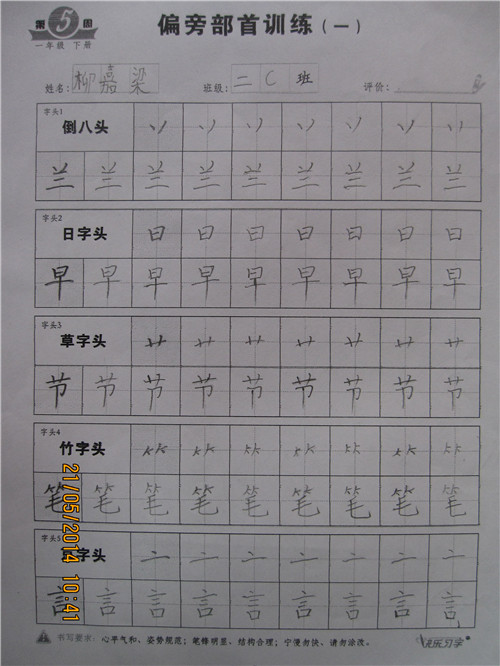 第5周
一年级 下册
偏旁部首训练(一)
姓名: 柳嘉梁 班级: 二C班 评价:
字头1
倒八头 丷 丷 丷 丷 丷 丷 丷
兰 兰 兰 兰 兰 兰 兰 兰 兰
字头2
日字头 日 日 日 日 日 日 日
早 早 早 早 早 早 早 早 早
字头3
草字头 艹 艹 艹 艹 艹 艹 艹
节 节 节 节 节 节 节 节 节
字头4
竹字头 ⺮ ⺮ ⺮ ⺮ ⺮ ⺮ ⺮
笔 笔 笔 笔 笔 笔 笔 笔 笔
字头5
字头 亠 亠 亠 亠 亠 亠 亠
言 言 言 言 言 言 言 言 言
书写要求: 心平气和、姿势规范; 笔锋明显、结构合理; 宁慢勿快、请勿涂改。
快乐习字
21/05/2014 10:41